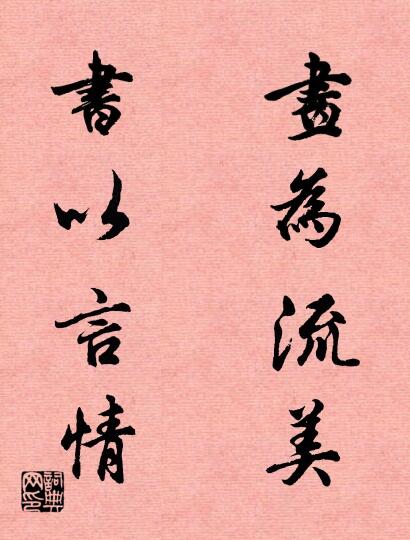 畫為流美
書以言情
詞典网印